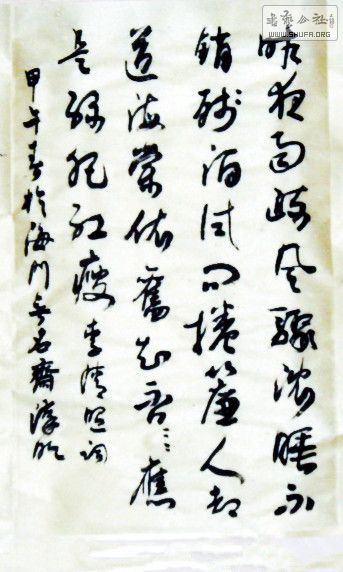 書藝公社
WWW.SHUFA.ORG
昨夜雨疏风骤浓睡不
销残酒试问捲簾人却
道海棠依舊知否⺀⺀應
是绿肥红瘦 李清照词
甲午春於海门无名齋